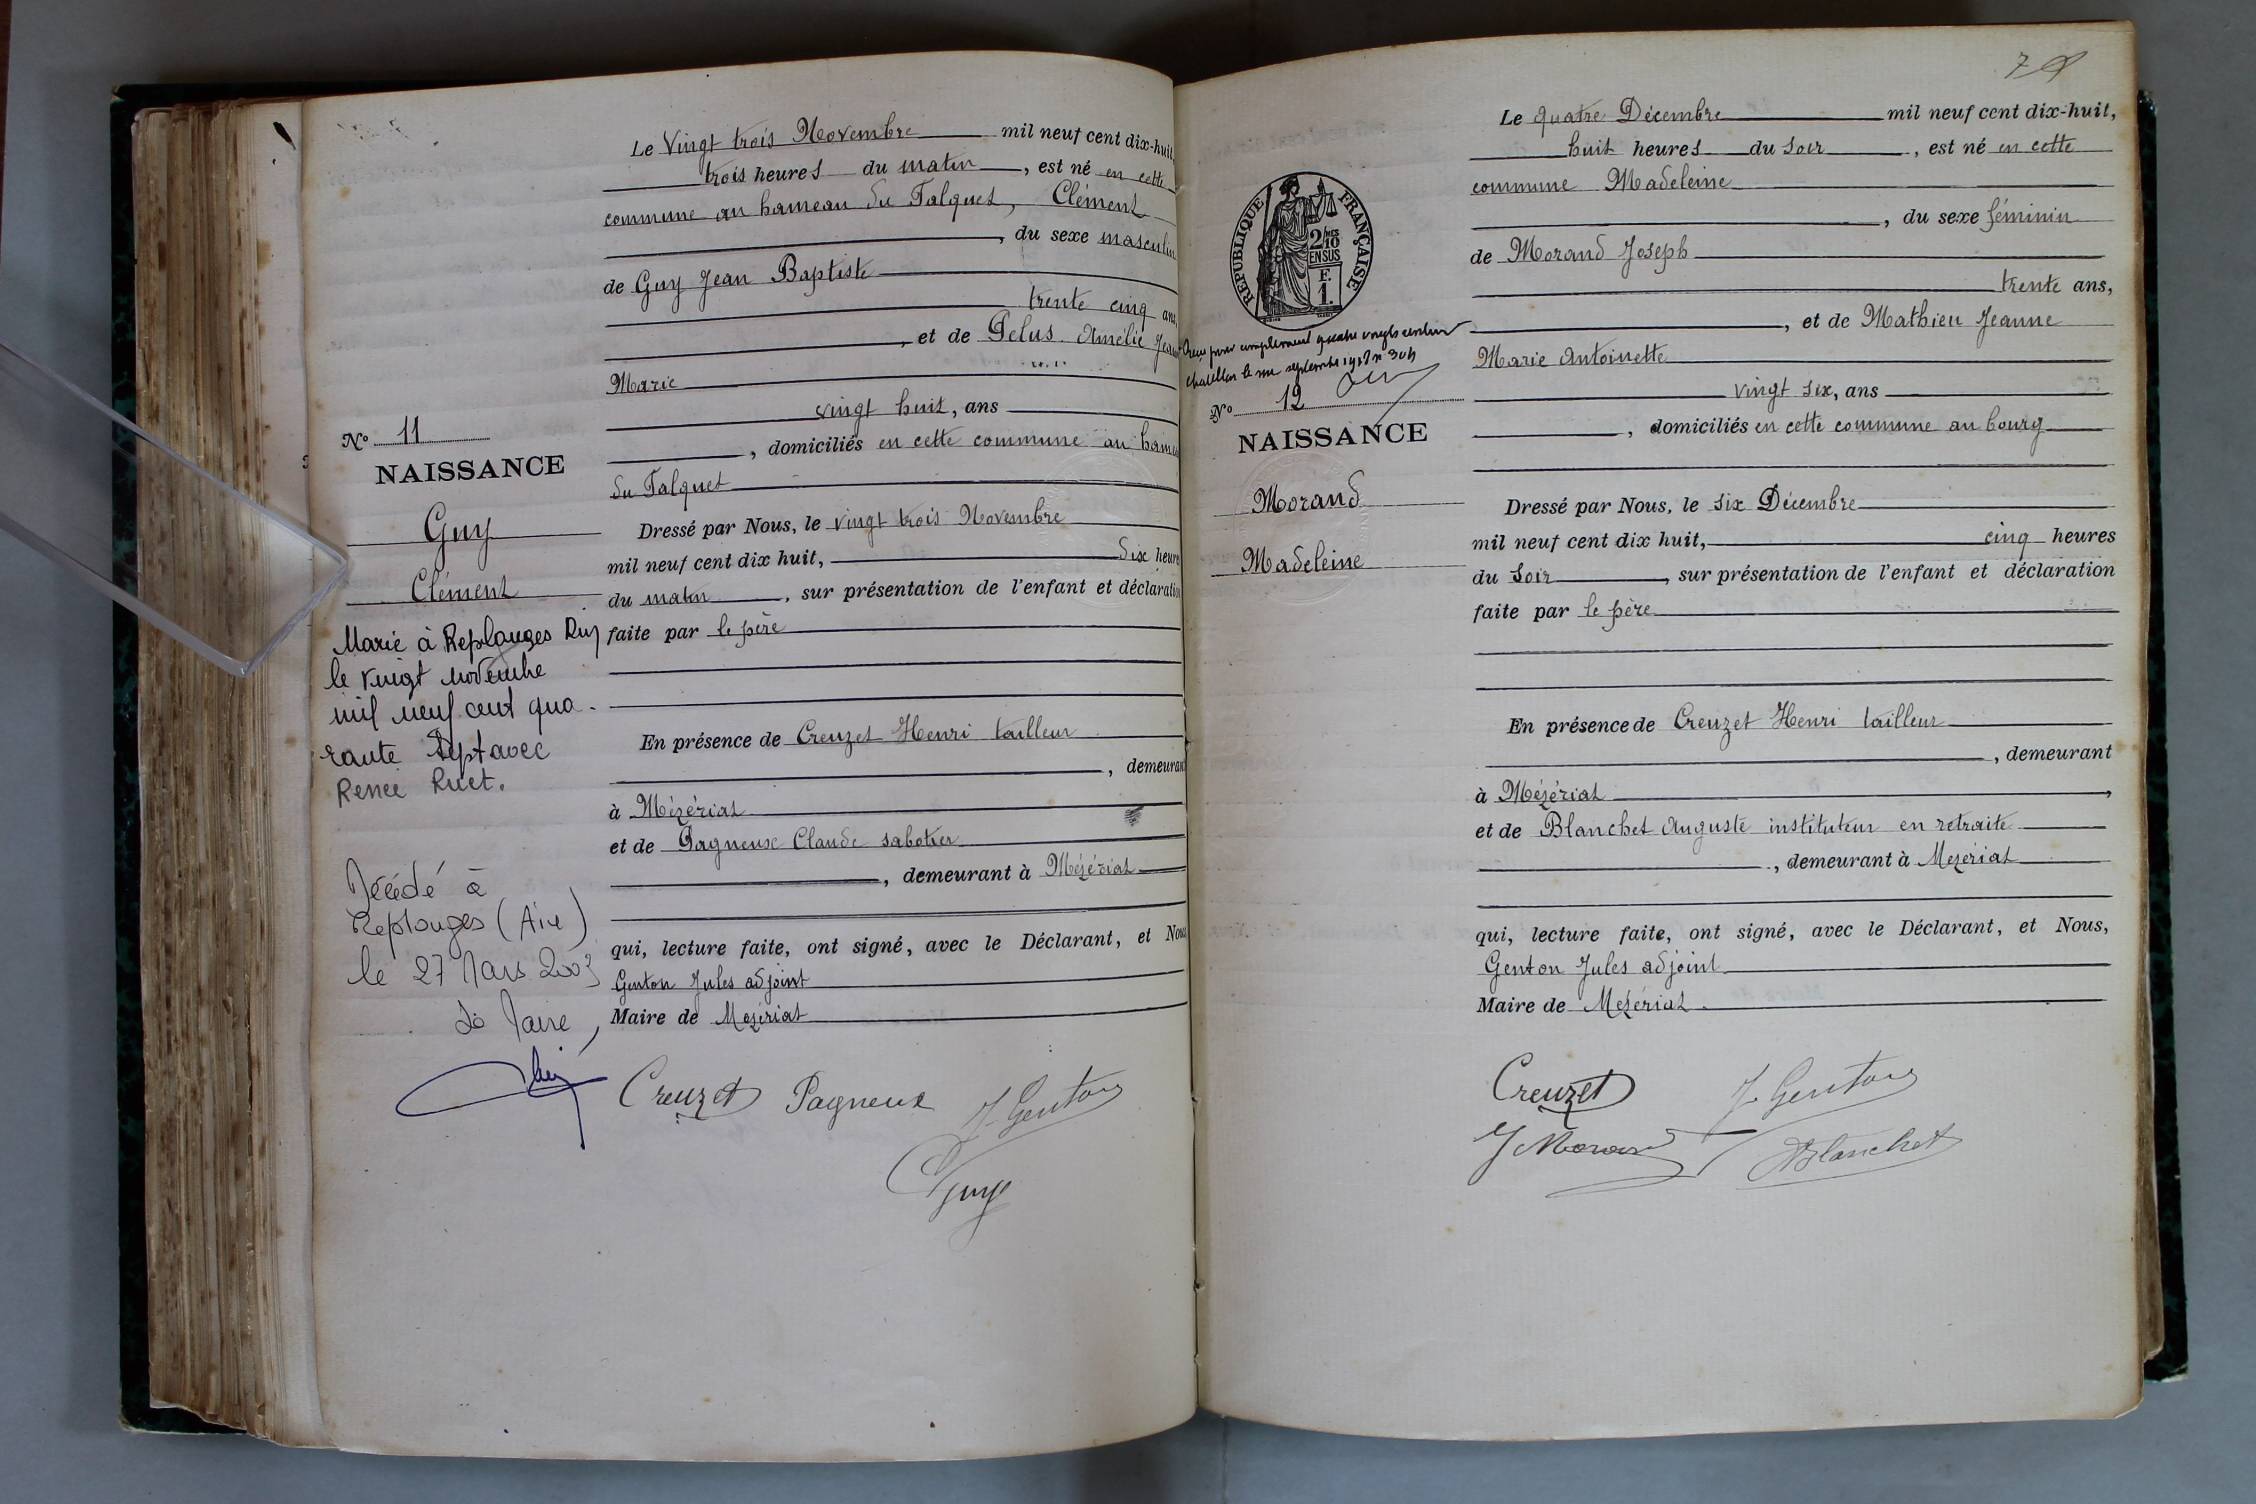 Le Vingt trois Novembre mil neuf cent dix-huit,
trois heures du matin, est né en cette
commune au hameau du Falquet, Clément
, du sexe masculin
de Guy Jean Baptiste
trente cinq ans,
, et de Pelus Amélie Jeanne
Marie
vingt huit, ans
, domiciliés en cette commune au hameau
du Falquet
Dressé par Nous, le vingt trois Novembre
mil neuf cent dix huit, dix heures
du matin, sur présentation de l'enfant et déclaration
faite par le père
En présence de Creuzet Henri tailleur
, demeurant
à Mézériat
et de Pagneux Claude sabotier
, demeurant à Mézériat
qui, lecture faite, ont signé, avec le Déclarant, et Nous
Genton Jules adjoint
Maire de Mezériat
Creuzet Pagneux J. Genton
Guy
No 11
NAISSANCE
Guy
Clément
Marié à Replonges
le vingt novembre
mil neuf cent qua-
rante sept avec
Renée Ruet.
Décédé à
Replonges (Ain)
le 27 Mars 2003
Le Maire,
78
RÉPUBLIQUE FRANÇAISE
2/10
EN SUS
F.
1.
Reçu pour complément quatre vingts centimes
chatillon le septembre 1918 n° 304
No 12
NAISSANCE
Morand
Madeleine
Le quatre Décembre mil neuf cent dix-huit,
huit heures du soir, est né en cette
commune Madeleine
, du sexe féminin
de Morand Joseph
trente ans,
, et de Mathieu Jeanne
Marie Antoinette
vingt six, ans
, domiciliés en cette commune au bourg
Dressé par Nous, le six Décembre
mil neuf cent dix huit, cinq heures
du soir, sur présentation de l'enfant et déclaration
faite par le père
En présence de Creuzet Henri tailleur
, demeurant
à Mézériat,
et de Blanchet Auguste instituteur en retraite
, demeurant à Mezériat
qui, lecture faite, ont signé, avec le Déclarant, et Nous,
Genton Jules adjoint
Maire de Mezériat
Creuzet J. Genton
J Morand Blanchet